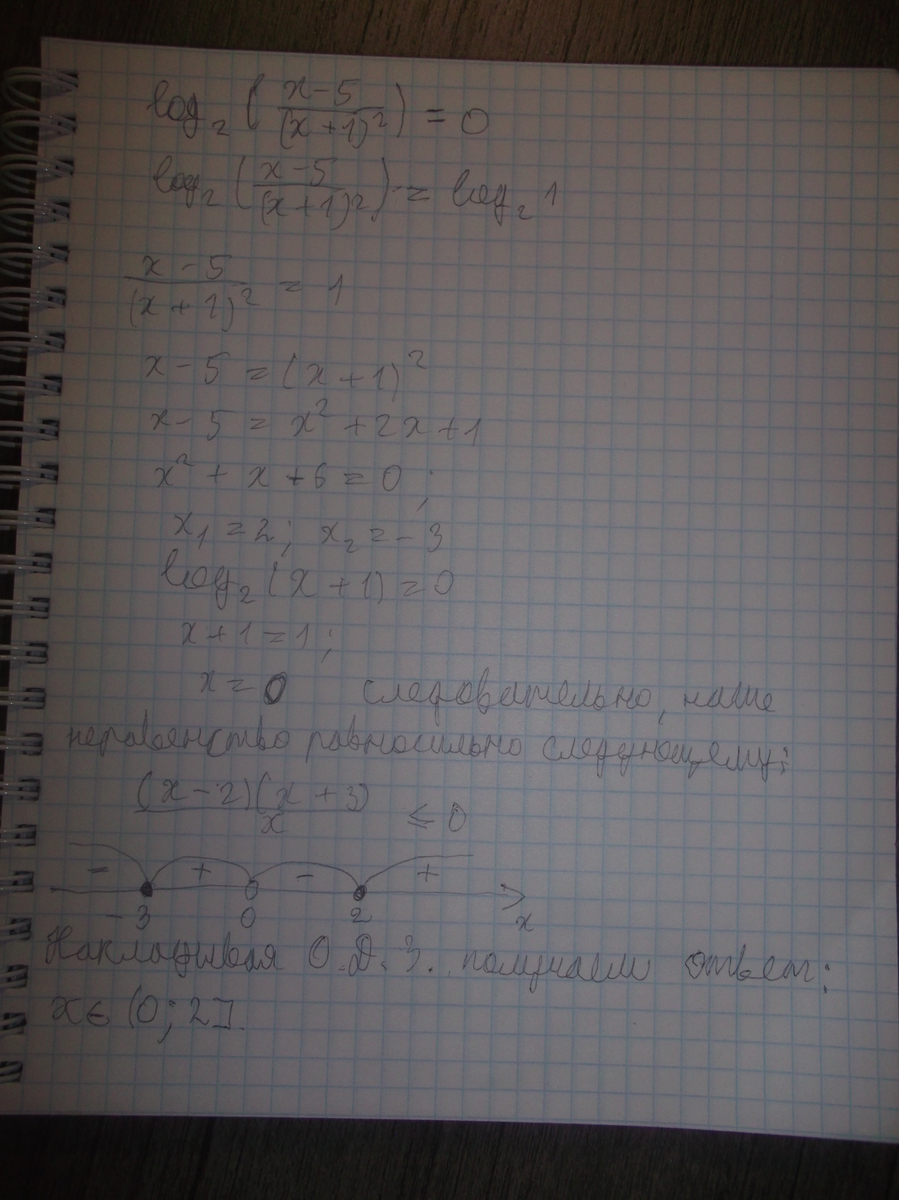 log₂ ((x-5)/(x+1)²) = 0
log₂ ((x-5)/(x+1)²) = log₂ 1
(x-5)/(x+1)² = 1
x-5 = (x+1)²
x-5 = x² + 2x + 1
x² + x + 6 = 0 ;
x₁ = 2; x₂ = -3
log₂ (x+1) = 0
x+1 = 1 ;
x = 0 следовательно, наше
неравенство равносильно следующему:
(x-2)(x+3)/x ≤ 0
- + - +
-3 0 2 x
Накладывая О.Д.З. получаем ответ:
x ∈ (0; 2].